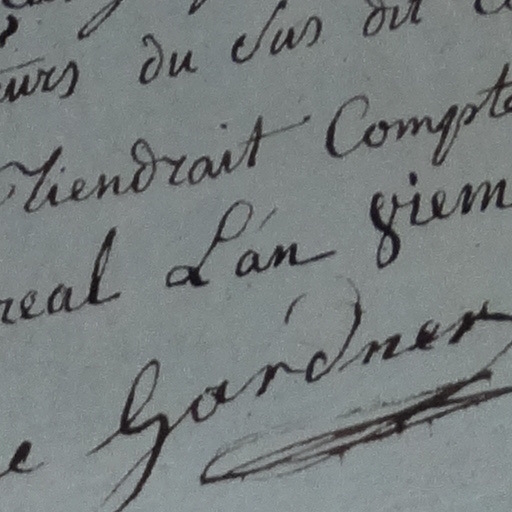 du sus dit
tiendrait Compte
real L'an giem
Gardner